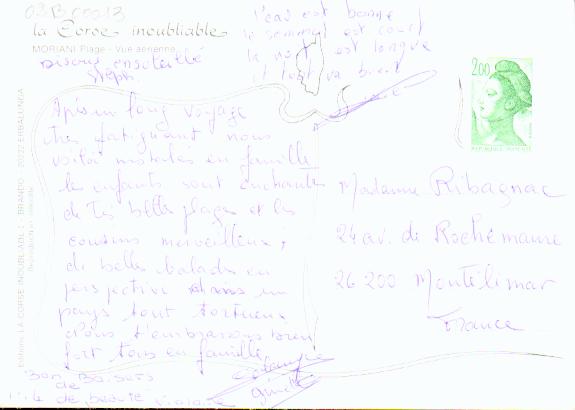 03BC0013
la Corse inoubliable
MORIANI Plage - Vue aérienne
Disons ensoleillé
Steph.
l'eau est bonne
le sommeil est court
la nuit est longue
et tout va bien
2,00
REPUBLIQUE FRANCAISE
Après un long voyage
très fatiguant nous
voilà installés en famille
les enfants sont enchantés
de très belles plages et les
cousins merveilleux ;
de belles balades en
perspective dans un
pays tout tortueux
Nous t'embrassons bien
fort tous en famille
Bon Baisers
de
l'île de beauté
Madame Ribagnac
24 av. de Rochemaure
26 200 Montélimar
France
Editions LA CORSE INOUBLIABLE - BRANDO - 20222 ERBALUNGA
Reproduction interdite